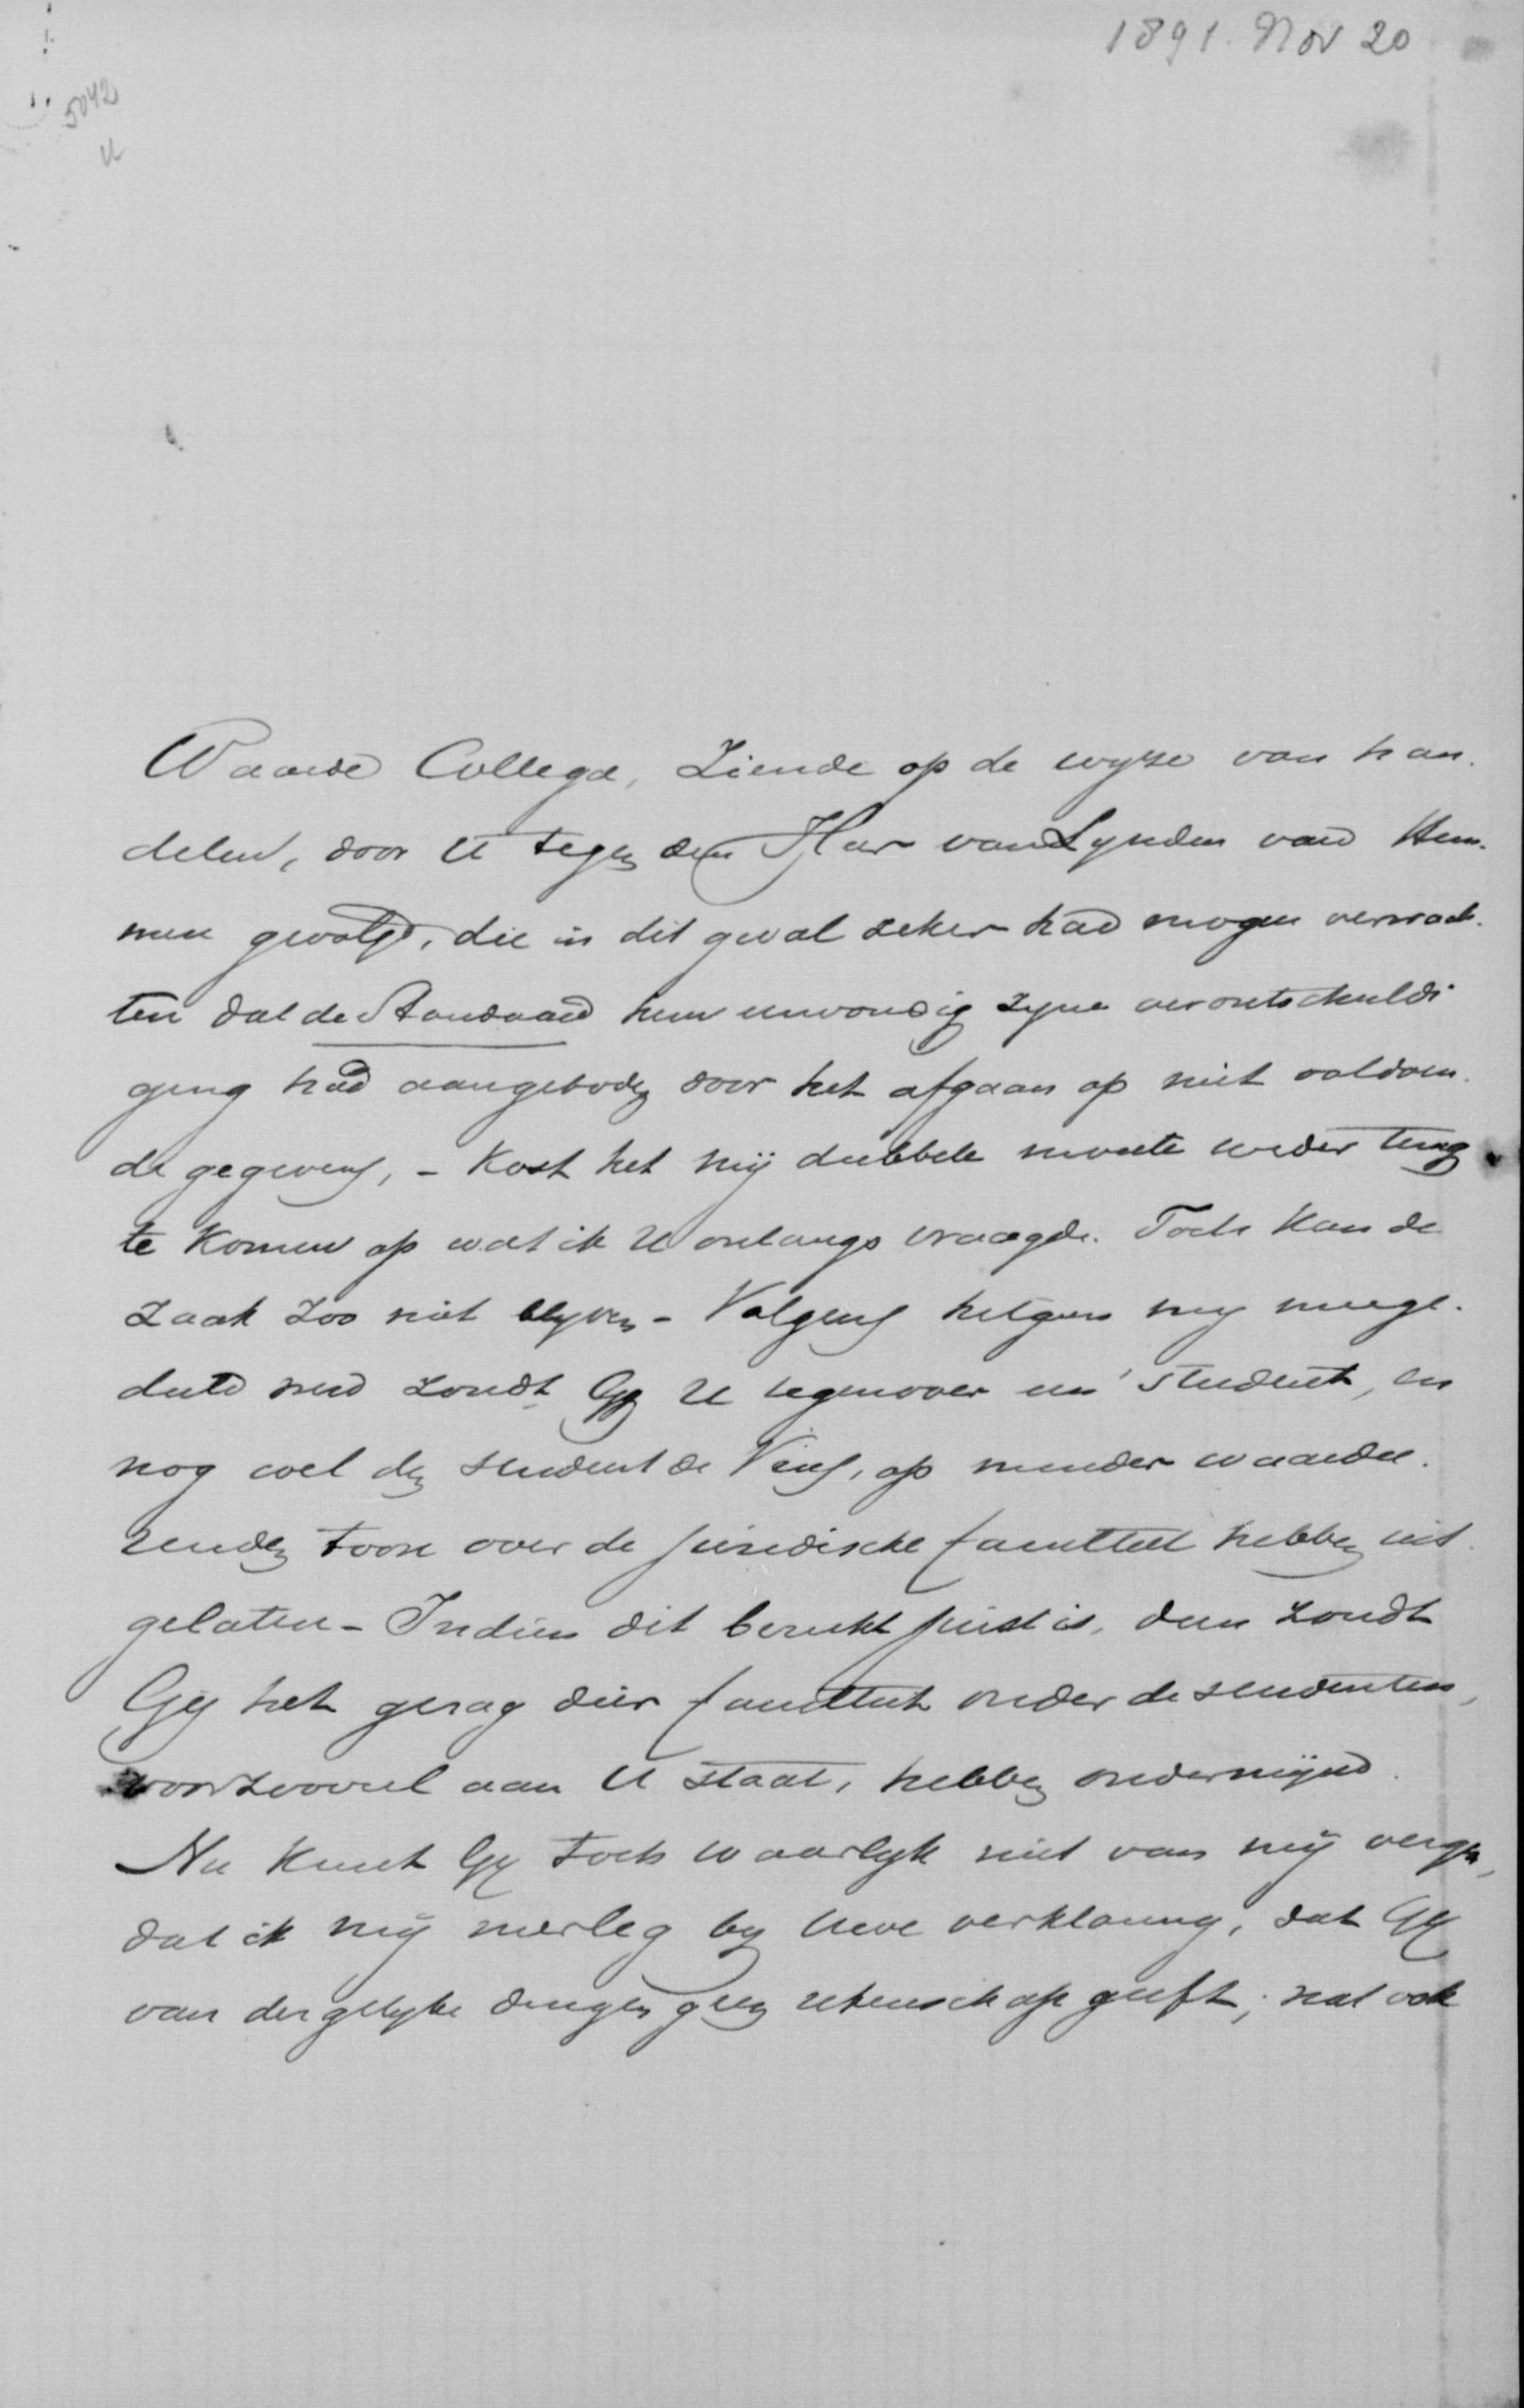 1891. Nov 20
5042
U
Waarde Collega, Ziende op de wyze van han.
delen, door U tegen den Heer van Lynden van Hem.
men gevolgd, die in dit geval zeker had mogen verwach.
ten dat de Standaard hem eenvoudig zyne verontschuldi
ging had aangeboden voor het afgaan op niet voldoen.
de gegevens, - kost het mij dubbele moeite weder terug
te komen op wat ik U onlangs vraagde. Toch kan de
zaak zoo niet blyven - Volgens hetgeen my meege.
deeld werd zoudt Gy U tegenover een' student, en
nog wel den student de Vries, op minder waardee.
renden toon over de juridische faculteit hebben uit
gelaten - Indien dit bericht juist is, dan zoudt
Gij het gezag dier faculteit onder de studenten,
voorzooveel aan U staat, hebben ondermijnd.
Nu kunt Gy toch waarlyk niet van mij vergen,
dat ik mij neerleg by Uwe verklaring, dat Gy
van dergelyke dingen geen rekenschap geeft; wat ook